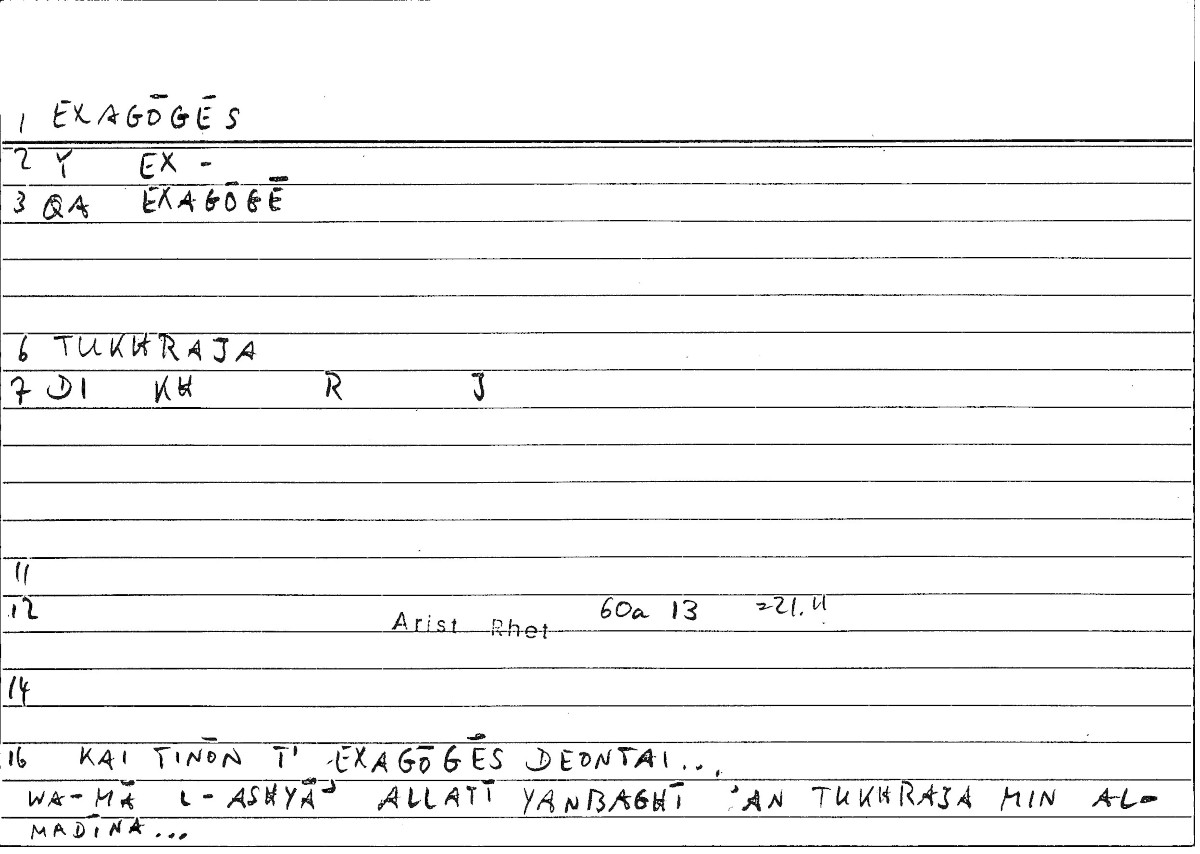 1 EXAGŌGĒS
2 Y EX -
3 QA EXAGŌGĒ
6 TUKHRAJA
7 DI KH R J
11
12 Arist Rhet 60a 13 =21.11
14
16 KAI TINŌN T' EXAGŌGĒS DEONTAI...
WA-MĀ L-ASHYĀʾ ALLATĪ YANBAGHĪ ʾAN TUKHRAJA MIN AL-
MADĪNA...